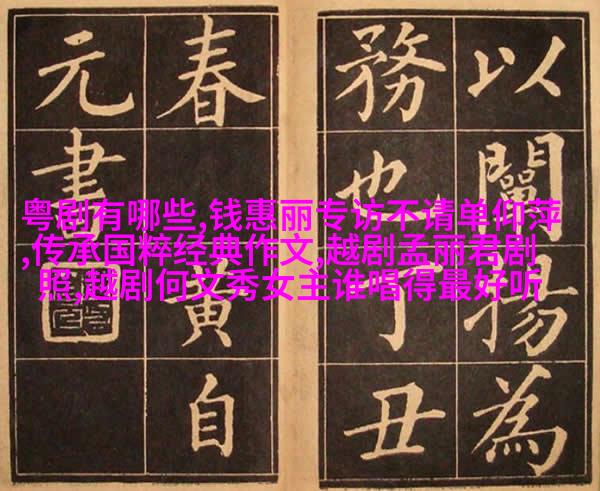 以闡揚為
務也丁丑
春黃自
元書
粤剧有哪些,钱惠丽专访不请单仰萍
,传承国粹经典作文,越剧孟丽君剧
照,越剧何文秀女主谁唱得最好听